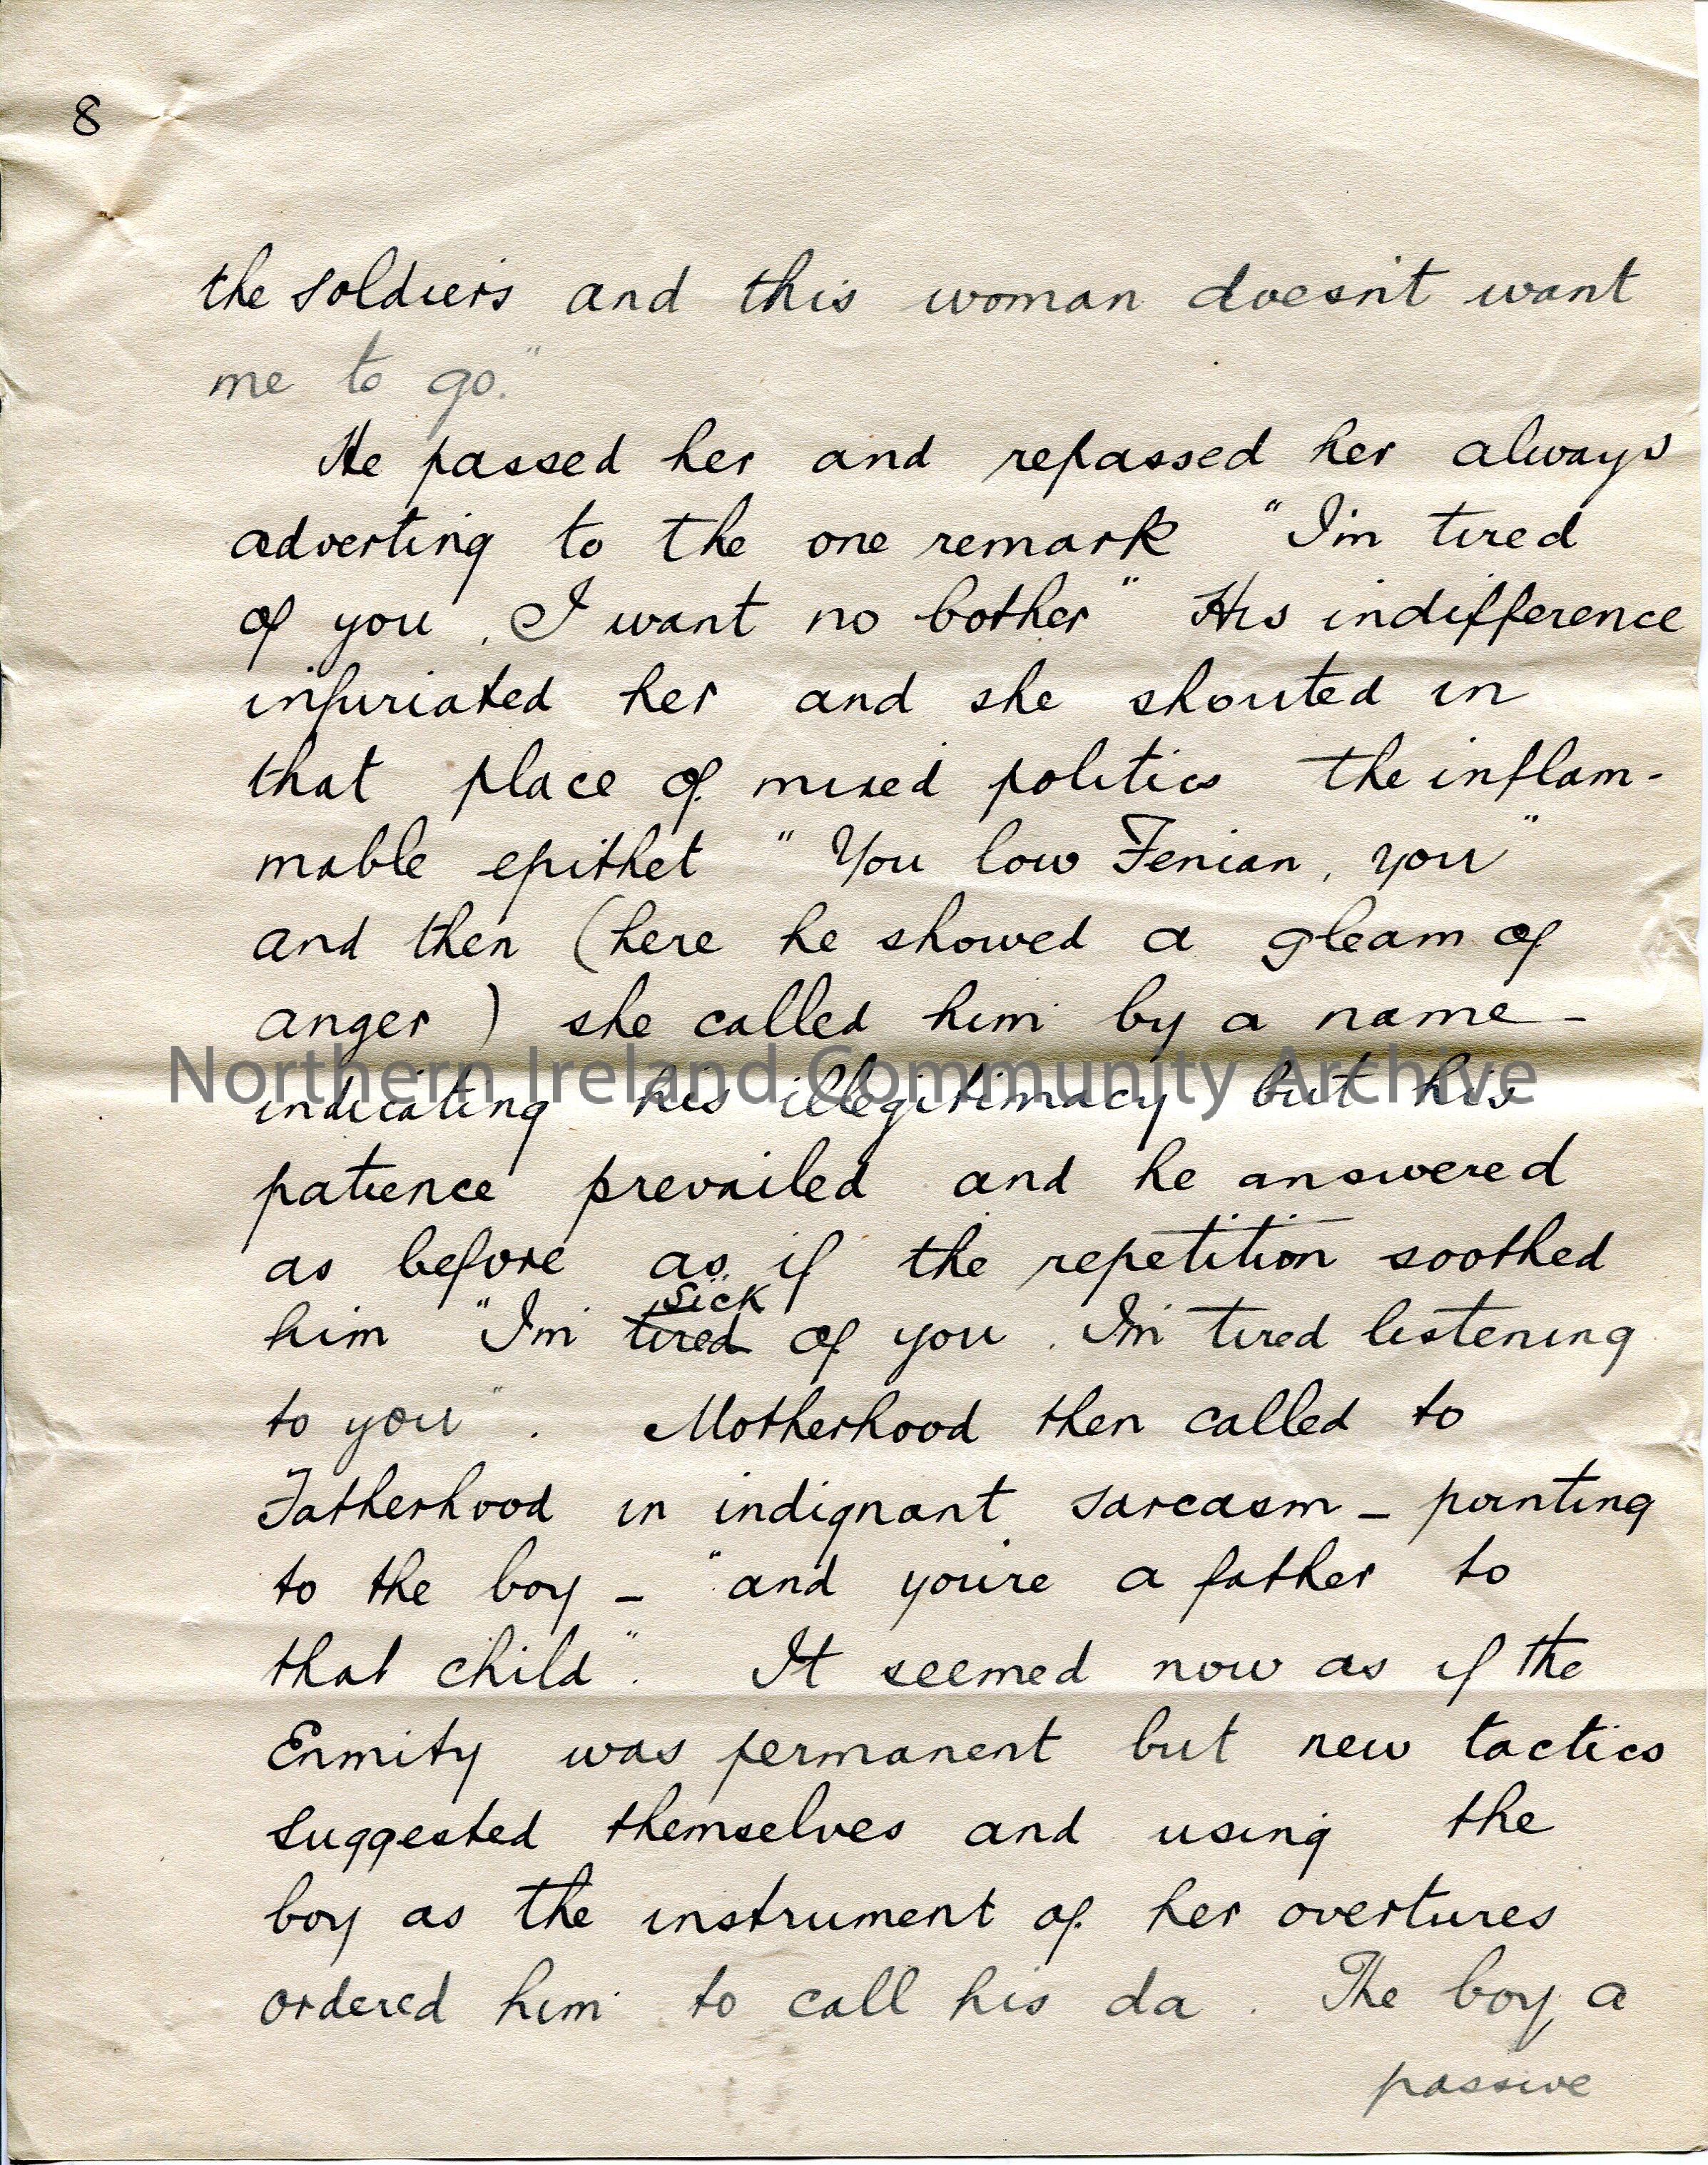 8
the soldiers and this woman doesn't want
me to go."
He passed her and repassed her always
adverting to the one remark "I'm tired
of you, I want no bother" His indifference
infuriated her and she shouted in
that place of mixed politics the inflam-
mable epithet "You low Fenian, you"
and then (here he showed a gleam of
anger) she called him by a name -
Northern Ireland Community Archive
indicating his illegitimacy but his
patience prevailed and he answered
as before as if the repetition soothed
him "I'm tired sick of you. I'm tired listening
to you". Motherhood then called to
Fatherhood in indignant sarcasm - pointing
to the boy - "and you're a father to
that child". It seemed now as if the
Enmity was permanent but new tactics
suggested themselves and using the
boy as the instrument of her overtures
ordered him to call his da. The boy, a
passive